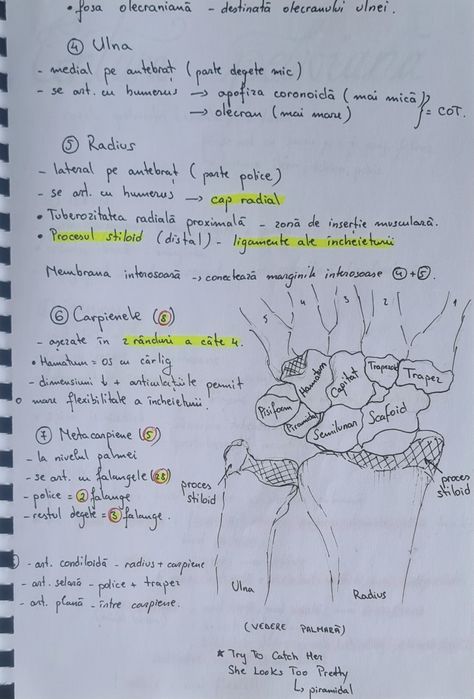 • fosa olecraniană - destinată olecranului ulnei.
④ Ulna
- medial pe antebraț (parte degete mic)
- se art. cu humerus → apofiza coronoidă (mai mică)
→ olecran (mai mare) } = COT.
⑤ Radius
- lateral pe antebraț (parte police)
- se art. cu humerus → cap radial
• Tuberozitatea radială proximală - zonă de inserție musculară.
• Procesul stiloid (distal) - ligamente ale încheieturii
Membrana interosoară → conectează marginile interosoase ④+⑤.
⑥ Carpienele (8)
- așezate în 2 rânduri a câte 4.
• Hamatum = os cu cârlig
- dimensiuni ↓ + articulațiile permit
mare flexibilitate a încheieturii.
⑦ Metacarpiene (5)
- la nivelul palmei
- se art. cu falangele (28)
- police = 2 falange
- restul degete = 3 falange.
- art. condiloidă - radius + carpiene
- art. selară - police + trapez
- art. plană - între carpiene.
5 4 3 2 1
Hamatum
Capitat
Trapezoid
Trapez
Pisiform
Piramidal
Semilunar
Scafoid
proces
stiloid
proces
stiloid
Ulna
Radius
(VEDERE PALMARĂ)
* Try To Catch Her
She Looks Too Pretty
↳ piramidal